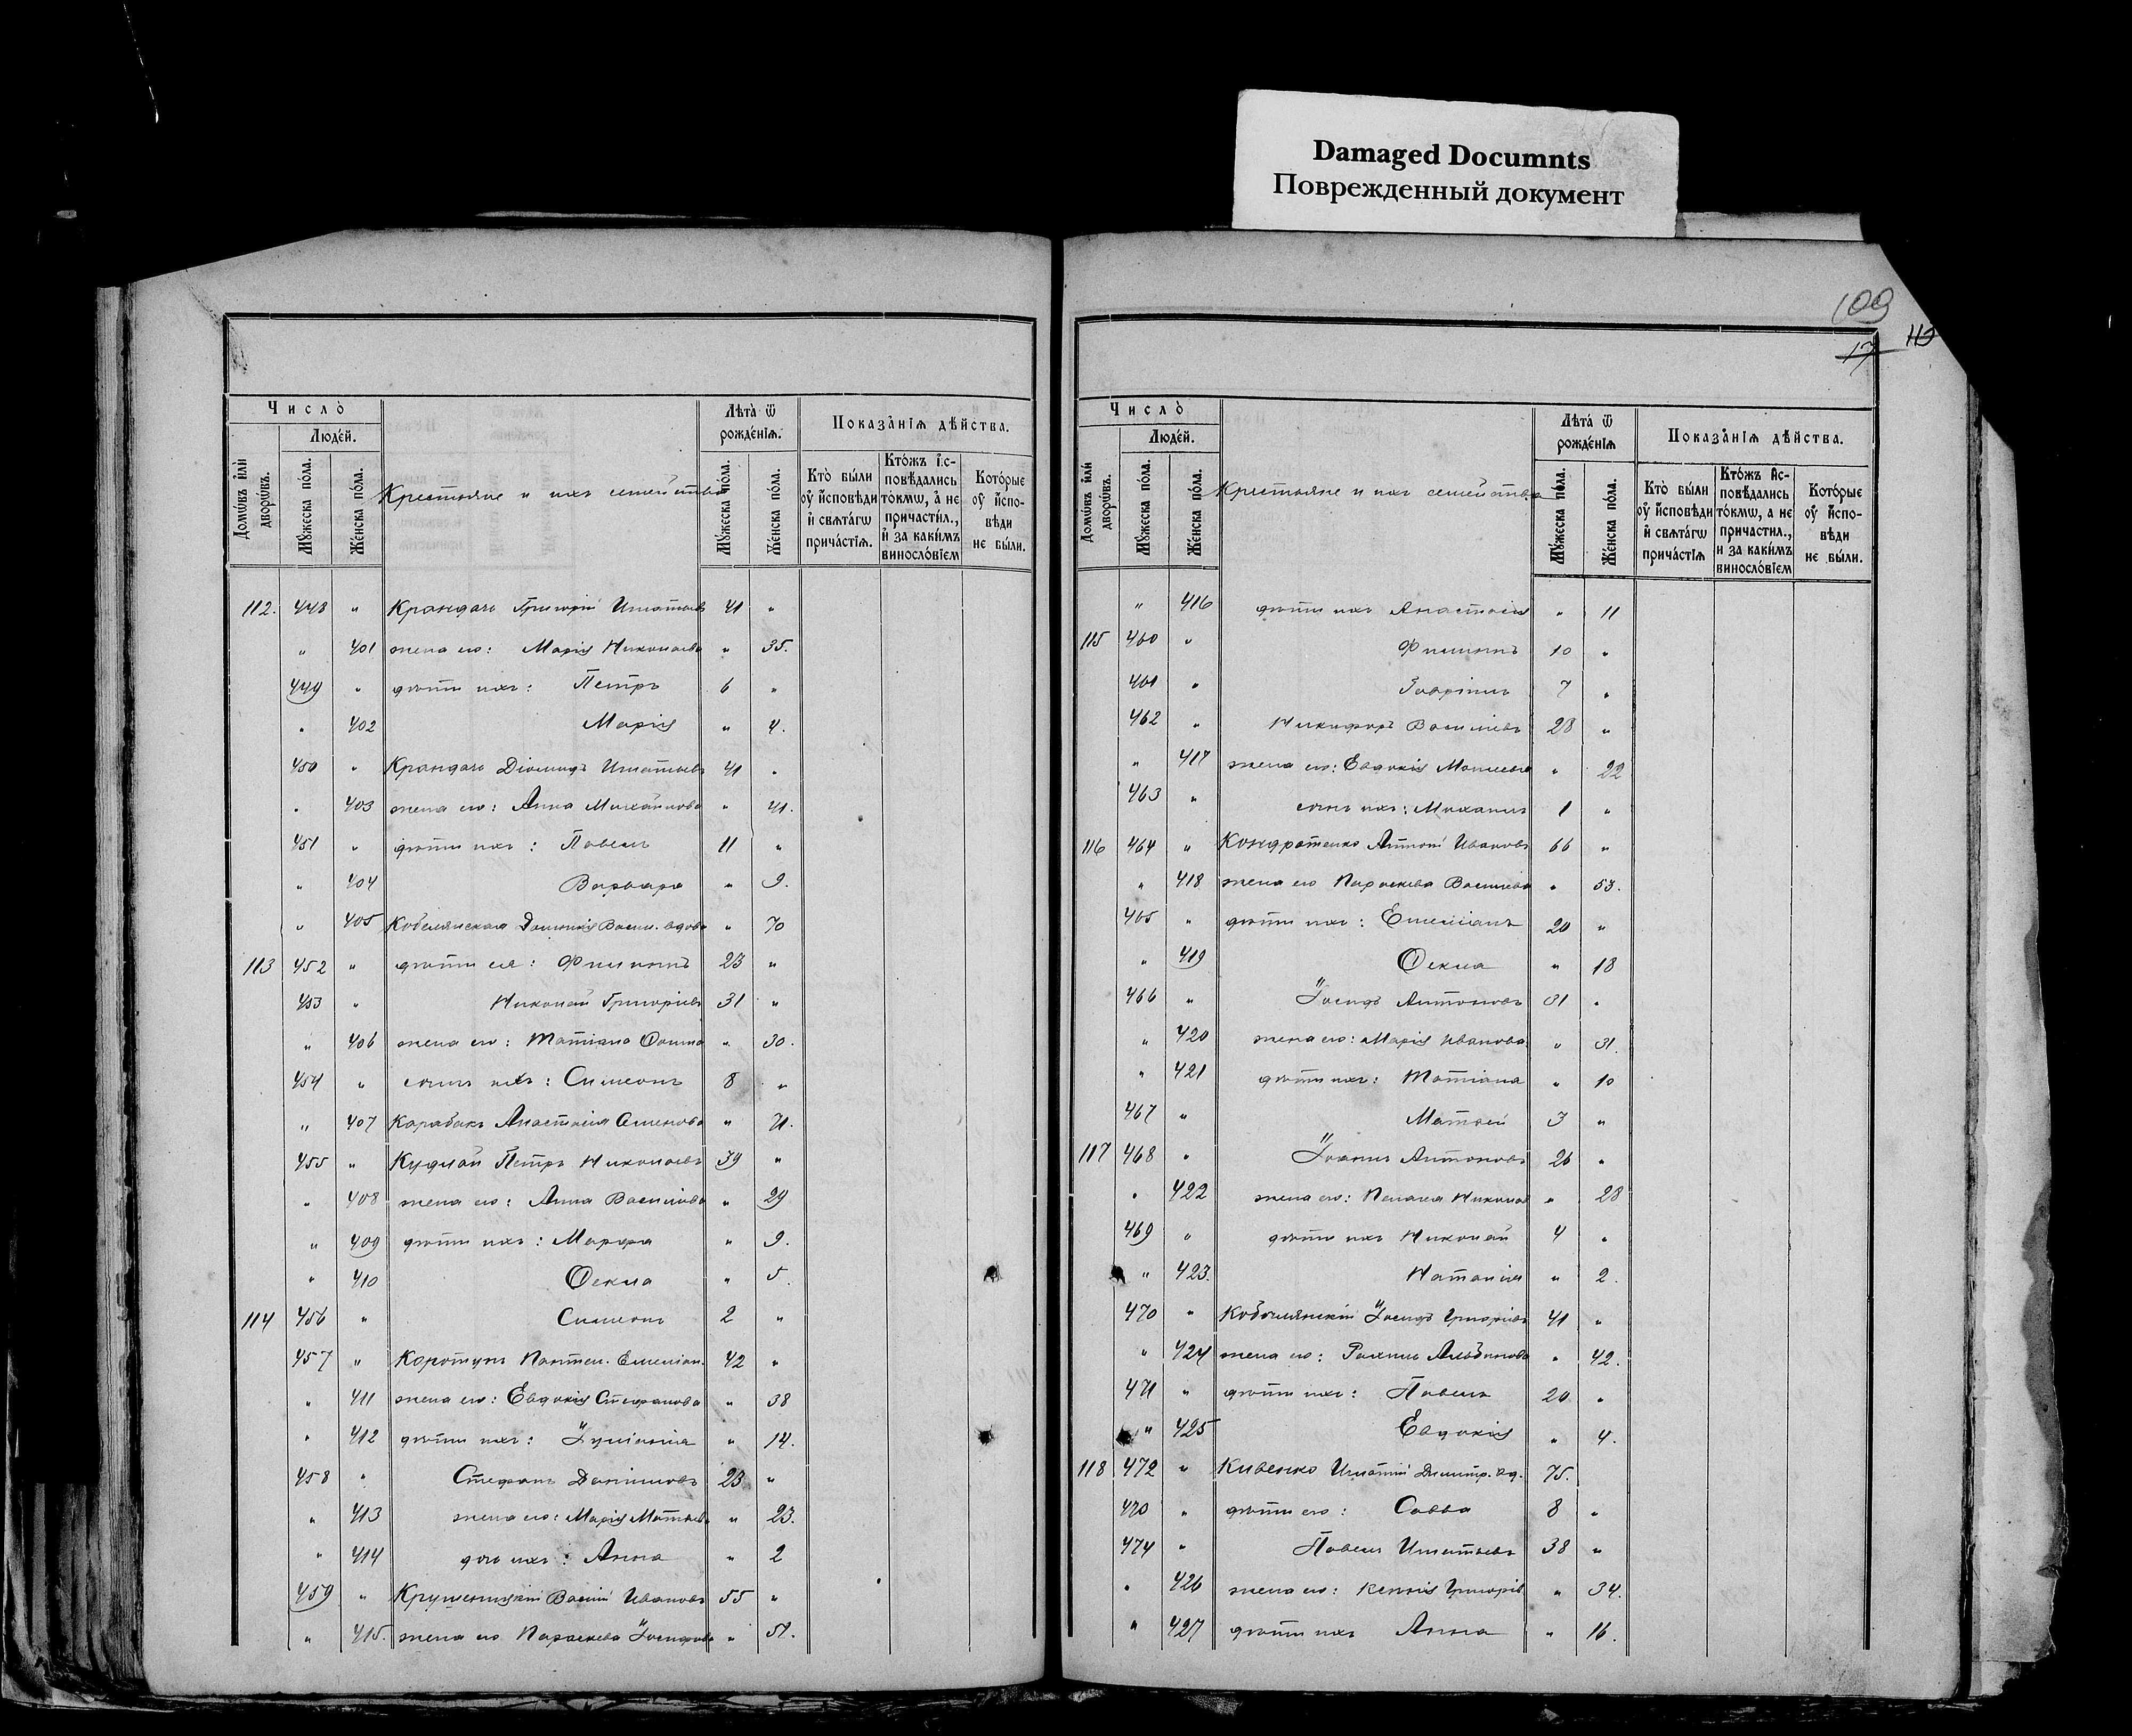 Damaged Documnts
Поврежденный документ
109
17
Число̀
Людéй.
Домѡ́въ и҆лѝ дворѡ́въ.
Мꙋ́жеска по́ла.
Же́нска по́ла.
Крестьяне и ихъ семейства
Лѣта̀ ѿ рожде́нїѧ.
Мꙋ́жеска по́ла.
Же́нска по́ла.
Показа̑нїѧ дѣ́йства.
Кто̀ бы́ли оу҆ и҆сповѣ́ди и҆ свѧта́гѡ прича́стїѧ.
Кто́жъ и҆сповѣ́дались то́кмѡ, а҆ не причасти́л., и҆ за каки́мъ винословїем
Кото́рые оу҆ и҆сповѣди не бы́ли.
112. 448 " Крандачъ Григорій Игнатьевъ 41 "
" 401 жена его: Марія Николаева " 35.
449 " дѣти ихъ: Петръ 6 "
" 402 Марія " 4.
450 " Крандачъ Діомидъ Игнатьевъ 41 "
" 403 жена его: Анна Михайлова " 41.
451 " дѣти ихъ: Павелъ 11 "
" 404 Варвара " 9.
" 405 Кобелянская Домникія Васил. вдова " 70
113 452 " дѣти ея: Филиппъ 23 "
453 " Николай Григоріевъ 31 "
" 406 жена его: Татіана Ѳомина " 30.
454 " сынъ ихъ: Симеонъ 8 "
" 407 Карабакъ Анастасія Семенова " 71.
455 " Кудлай Петръ Николаевъ 39 "
" 408 жена его: Анна Василіова " 29
" 409 дѣти ихъ: Марѳа " 9.
" 410 Ѳекла " 5.
114 456 " Симеонъ 2 "
457 " Коротунъ Пантел. Емеліан. 42 "
" 411 жена его: Евдокія Стефанова " 38
" 412 дѣти ихъ: Іуліанія " 14.
458 " Стефанъ Даніиловъ 23 "
" 413 жена его: Марія Матѳіева " 23.
" 414 дочь ихъ: Анна " 2
459 " Крушеницкій Василій Ивановъ 55 "
" 415. жена его Параскева Іосифова " 51.
Число̀
Людéй.
Домѡ́въ и҆лѝ дворѡ́въ.
Мꙋ́жеска по́ла.
Же́нска по́ла.
Крестьяне и ихъ семейства
Лѣта̀ ѿ рожде́нїѧ
Мꙋ́жеска по́ла.
Же́нска по́ла.
Показа̑нїѧ дѣ́йства.
Кто̀ бы́ли оу҆ и҆сповѣ́ди и҆ свѧта́гѡ прича́стїѧ
Кто́жъ Асповѣ́дались то́кмѡ, а не причасти́л., и за каки́мъ винословїем
Кото́рые оу҆ и҆сповѣди не бы́ли.
" 416 дѣти ихъ Анастасія " 11
115 460 " Филиппъ 10 "
461 " 7 "
462 " Никифоръ Василіевъ 28 "
" 417 жена его: Евдокія " 22
463 " сынъ ихъ: Михаилъ 1 "
116 464 " Кондратенко Антоній Ивановъ 66 "
" 418 жена его Параскева Василіева " 53.
465 " дѣти ихъ: Емеліанъ 20 "
" 419 Ѳекла " 18
466 " Іосифъ Антоновъ 31 "
" 420 жена его: Марія Иванова " 31.
" 421 дѣти ихъ: Татіана " 10
467 " Матѳей 3 "
117 468 " Іоаннъ Антоновъ 26 "
" 422 жена его: Пелагея Никола " 28
469 " дѣти ихъ Николай 4 "
" 423. Наталія " 2.
470 " Кобылянскій Іосифъ Григоріевъ 41 "
" 424 жена его: Рахиль Альбинова " 42.
471 " дѣти ихъ: Павелъ 20 "
" 425 Евдокія " 4.
118 472 " Кивенко Игнатій Димитр. вд. 75.
470 " дѣти его: Савва 8 "
474 " Павелъ Игнатьевъ 38 "
" 426 жена его: Ксенія Григорів " 34.
" 427 дѣти ихъ Анна " 16.